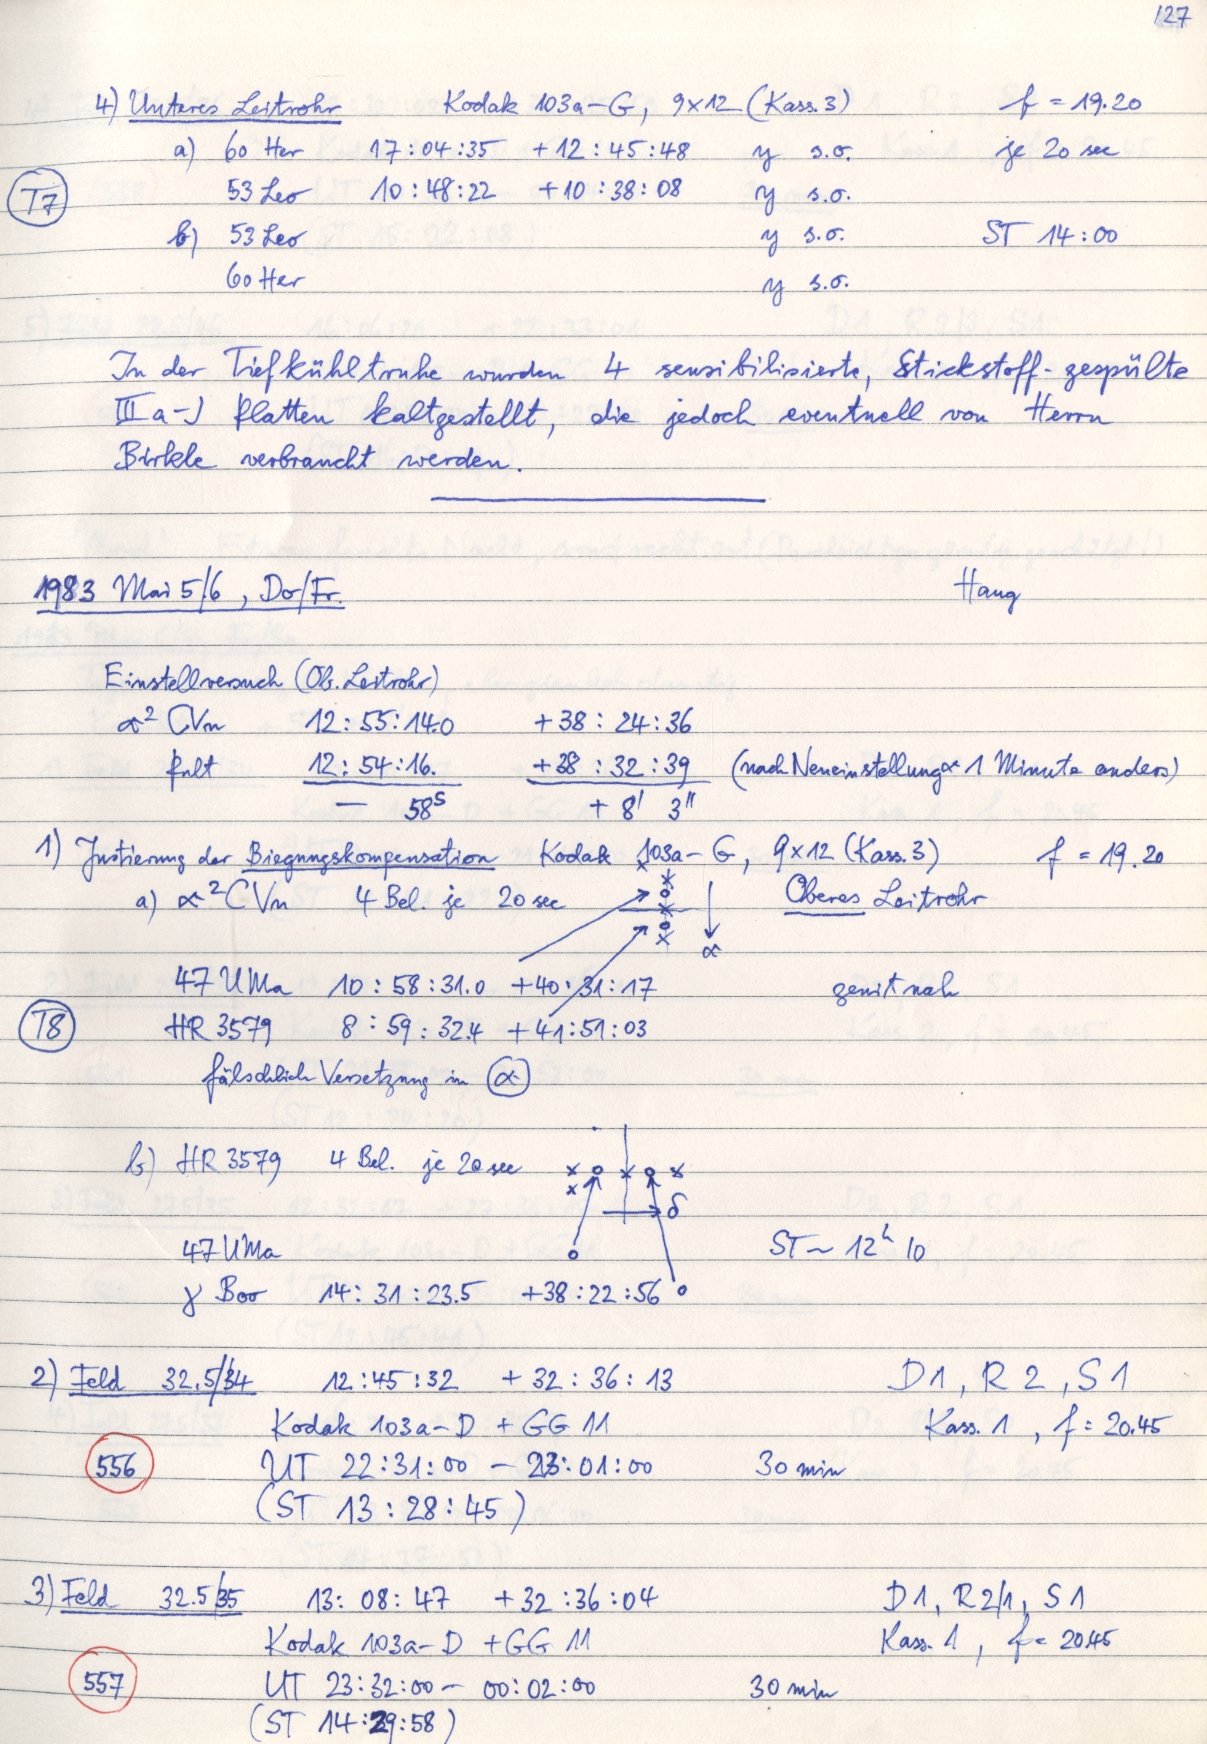 127
4) Unteres Leitrohr Kodak 103a-G, 9x12 (Kass. 3) f = 19.20
a) 60 Her 17:04:35 +12:45:48 y s.o. je 20 sec
T7 53 Leo 10:48:22 +10:38:08 y s.o.
b) 53 Leo y s.o. ST 14:00
60 Her y s.o.
In der Tiefkühltruhe wurden 4 sensibilisierte, Stickstoff-gespülte
IIIa-J Platten kaltgestellt, die jedoch eventuell von Herrn
Birkle verbraucht werden.
1983 Mai 5/6, Do/Fr. Haug
Einstellversuch (Ob. Leitrohr)
α² CVn 12:55:14.0 +38:24:36
Pult 12:54:16. +38:32:39 (nach Neueinstellung α 1 Minute anders)
— 58s + 8' 3"
1) Justierung der Biegungskompensation Kodak 103a-G, 9x12 (Kass. 3) f = 19.20
a) α² CVn 4 Bel. je 20 sec Oberes Leitrohr
α
47 UMa 10:58:31.0 +40:31:17 zenitnah
T8 HR 3579 8:59:32.4 +41:51:03
fälschlich Versetzung in α
b) HR 3579 4 Bel. je 20 sec
δ
47 UMa ST ~ 12h 10
γ Boo 14:31:23.5 +38:22:56
2) Feld 32.5/34 12:45:32 +32:36:13 D1, R2, S1
Kodak 103a-D + GG 11 Kass. 1, f = 20.45
556 UT 22:31:00 - 23:01:00 30 min
(ST 13:28:45)
3) Feld 32.5/35 13:08:47 +32:36:04 D1, R2/1, S1
Kodak 103a-D + GG 11 Kass. 1, f = 20.45
557 UT 23:32:00 - 00:02:00 30 min
(ST 14:29:58)